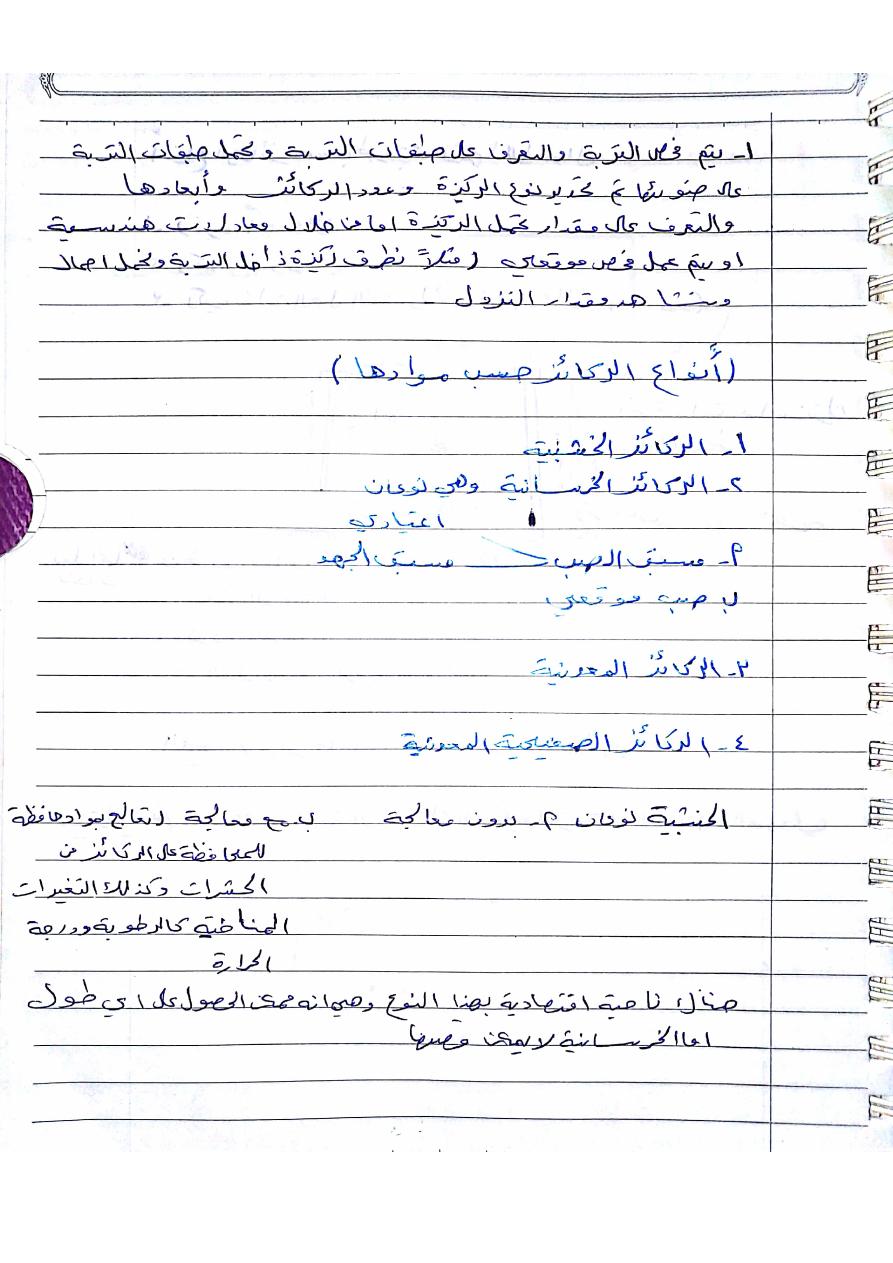 ١- يتم فحص التربة والتعرف على طبقات التربة وتحمل طبقات التربة
على ضوئها تم تحديد نوع الركيزة وعدد الركائز وأبعادها
والتعرف على مقدار تحمل الركيزة اما من خلال معادلات هندسية
او يتم عمل فحص موقعي (مثلاً نطرق ركيزة داخل التربة وتحمل احمال
ونشاهد مقدار النزول
(أنواع الركائز حسب موادها)
١- الركائز الخشبية
٢- الركائز الخرسانية وهي نوعان
اعتيادي
م- مسبق الصب مسبق الجهد
ب صب موقعي
٣- الركائز المعدنية
٤- الركائز الصفيحية المعدنية
الخشبية نوعان م- بدون معالجة ب- مع معالجة (تعالج بمواد حافظة
للمحافظة على الركائز من
الحشرات وكذلك التغيرات
المناخية كالرطوبة ودرجة
الحرارة
هناك ناحية اقتصادية بهذا النوع وهي انه ممكن الحصول على اي طول
اما الخرسانية لا يمكن قصها